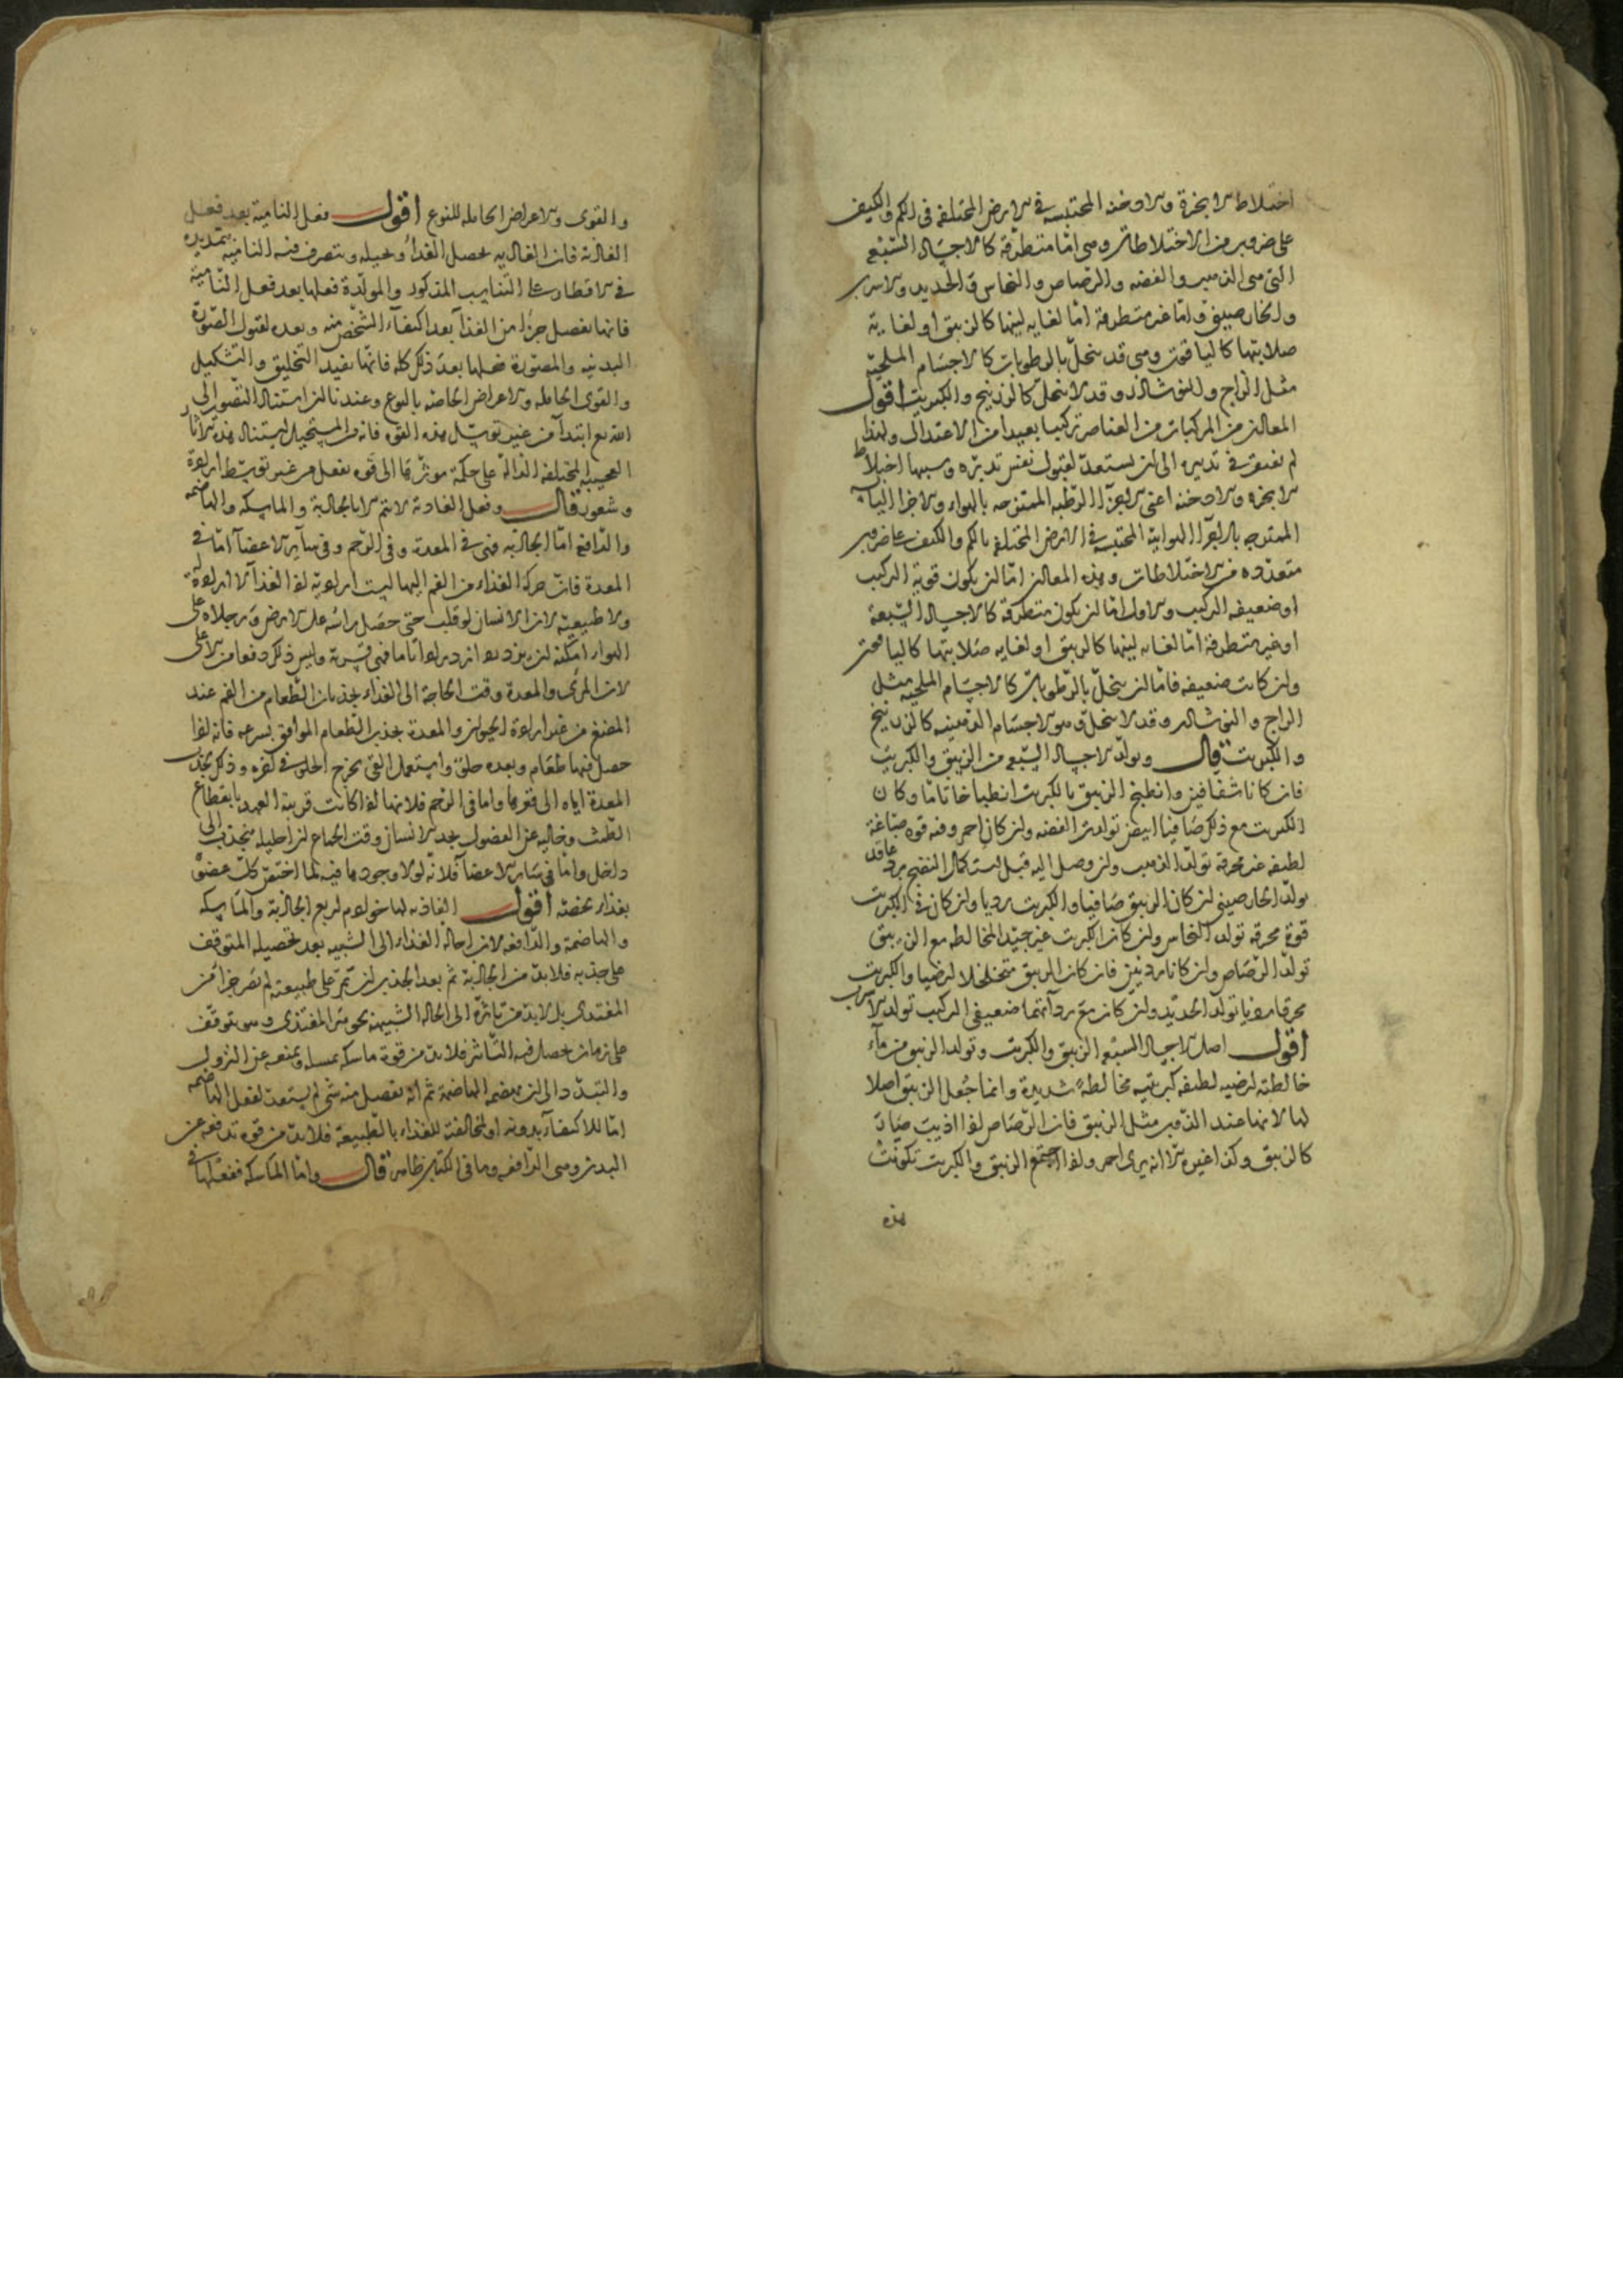 اختلاط الابخرة والادخنة المحتبسة في الارض المختلفة في الكم والكيف
على ضروب من الاختلاطات وهي اما متطرقة كالاجساد السبعة
التي هي الذهب والفضة والرصاص والنحاس والحديد والاسرب
والخارصيني واما غير متطرقة اما لغاية لينها كالزيبق او لغاية
صلابتها كالياقوت وهي قد ينحل بالرطوبات كالاجسام الملحية
مثل الزاج والنوشاذر وقد لا ينحل كالزرنيخ والكبريت اقول
المعادن من المركبات من العناصر تركيبا بعيدا من الاعتدال ولهذا
لم يفتقر في تدبيره الى ان يستعد لقبول نفس تدبره وسببها اختلاط
الابخرة والادخنة اعني الاجزاء الرطبة الممتزجة بالهواء والاجزاء اليابسة
الممتزجة بالاجزاء الهوائية المحتبسة في الارض المختلفة بالكم والكيف على ضروب
متعددة من الاختلاطات وهذه المعادن اما ان يكون قوية التركيب
او ضعيفة التركيب والاول اما ان يكون متطرقة كالاجساد السبعة
او غير متطرقة اما لغاية لينها كالزيبق او لغاية صلابتها كالياقوت
وان كانت ضعيفة فاما ان ينحل بالرطوبات كالاجسام الملحية مثل
الزاج والنوشادر وقد لا ينحل وهو الاجسام الدهنية كالزرنيخ
والكبريت قال وتولد الاجساد السبعة من الزيبق والكبريت
فان كانا شفافين وانطبخ الزيبق بالكبريت انطباخا تاما وكان
الكبريت مع ذلك صافيا ابيض تولدت الفضة وان كان احمر وفيه قوة صباغة
لطيفة غير محرقة تولد الذهب وان وصل اليه قبل استكمال النضج برد عاقد
تولد الخارصيني وان كان الزيبق صافيا والكبريت رديا وان كان في الكبريت
قوة محرقة تولد النحاس وان كان الكبريت غير جيد المخالطة مع الزيبق
تولد الرصاص وان كانا رديين فان كان الزيبق متخلخلا ارضيا والكبريت
محرقا رديا تولد الحديد وان كان مع رداءتهما ضعيفي التركيب تولد الاسرب
اقول اصل الاجساد السبعة الزيبق والكبريت وتولد الزيبق من ماء
خالطته ارضية لطيفة كبريتية مخالطة شديدة وانما جعل الزيبق اصلا
لها لانها عند الذوب مثل الزيبق فان الرصاص اذا اذيب صار
كالزيبق وكذا غيره الا انه يرى احمر واذا اجتمع الزيبق والكبريت تكونت
هذه
والقوى والاعراض الحاملة للنوع اقول فعل النامية بعد فعل
الغاذية فان الغاذية يحصل الغذاء ويحيله ويتصرف فيه النامية بتمديده
في الاقطار على التناسب المذكور والمولدة فعلها بعد فعل النامية
فانها يفصل جزءا من الغذاء بعد اكتفاء الشخص منه وبعده لقبول الصورة
البدنية والمصورة فعلها بعد ذلك كله فانها يفيد التخليق والتشكيل
والقوى الحاملة والاعراض الخاصة بالنوع وعندنا ان استناد التصور الى
الله تع ابتداء من غير توسل هذه القوة فانه من المستحيل استناد هذه الاثار
العجيبة المختلفة الدالة على حكمة موثرها الى قوة يفعل من غير توسط ارادة
وشعور قال وفعل الغاذية لا يتم الا بالجاذبة والماسكة والهاضمة
والدافعة اما الجاذبة فهي في المعدة وفي الرحم وفي سائر الاعضاء اما في
المعدة فان حركة الغذاء من الفم اليها ليست ارادية اذ الغذاء لا ارادة له
ولا طبيعية لان الانسان لو قلب حتى حصل راسه على الارض ورجلاه على
الهواء امكنه ان يزدرد ازدرادا تاما فهي قسرية وليس ذلك دفعا من الاعلى
لان المرئ والمعدة وقت الحاجة الى الغذاء يجذبان الطعام من الفم عند
المضغ من غير ارادة الحيوان والمعدة يجذب الطعام الموافق بسرعة فانه اذا
حصل فيها طعام وبعده حلو واستعمل القي يخرج الحلو في اخره وذلك لجذب
المعدة اياه الى قعرها واما في الرحم فلانها اذا كانت قريبة العهد بانقطاع
الطمث وخالية عن الفضول يجد الانسان وقت الجماع ان احليله ينجذب الى
داخل واما في سائر الاعضاء فلانه لولا وجودها فيه لما اختص كل عضو
بغذاء يخصه اقول الغاذية لها خوادم اربع الجاذبة والماسكة
والهاضمة والدافعة لان احالة الغذاء الى الشبيه بعد تحصيله المتوقف
على جذبه فلابد من الجاذبة ثم بعد الجذب ان تم على طبيعته لم يصر جزءا من
المغتذي بل لابد من تاثره الى الحالة الشبيهة بجوهر المغتذي وهو يتوقف
على زمان يحصل فيه التاثر فلابد من قوة ماسكة يمسكه ويمنعه عن النزول
والتبدد الى ان يهضمه الهاضمة ثم انه يفصل منه شي لم يستعد لفعل الهاضمة
اما للاكتفاء بدونه او لمخالفته للغذاء بالطبيعة فلابد من قوة تدفعه عن
البدن وهي الدافعة وما في الكتاب ظاهر قال واما الماسكة ففعلها في